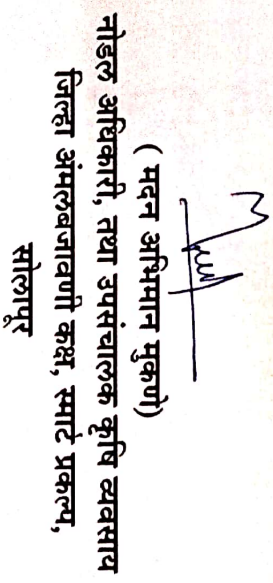 ( मदन अभिमान मुकणे)
नोडल अधिकारी, तथा उपसंचालक कृषि व्यवसाय
जिल्हा अंमलबजावणी कक्ष, स्मार्ट प्रकल्प,
सोलापूर